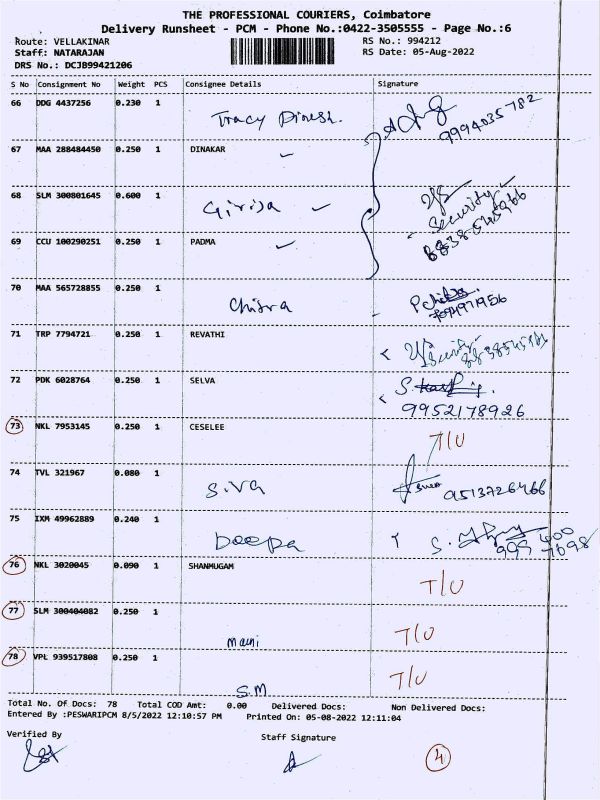 THE PROFESSIONAL COURIERS, Coimbatore
Delivery Runsheet - PCM - Phone No.:0422-3505555 - Page No.:6
Route: VELLAKINAR RS No.: 994212
Staff: NATARAJAN RS Date: 05-Aug-2022
DRS No.: DCJB99421206
S No Consignment No Weight PCS Consignee Details Signature
66 DDG 4437256 0.230 1 Tracy Dinesh. 9994035782
67 MAA 288484450 0.250 1 DINAKAR
68 SLM 300801645 0.600 1 Girija Security
69 CCU 100290251 0.250 1 PADMA
70 MAA 565728855 0.250 1 Chitra
71 TRP 7794721 0.250 1 REVATHI Security
72 PDK 6028764 0.250 1 SELVA S.
9952178926
73 NKL 7953145 0.250 1 CESELEE T/U
74 TVL 321967 0.080 1 Siva 9513726466
75 IXM 49962889 0.240 1 Deepa S.
76 NKL 3020045 0.090 1 SHANMUGAM T/U
77 SLM 300404082 0.250 1 mani T/U
78 VPL 939517808 0.250 1 S.M T/U
Total No. Of Docs: 78 Total COD Amt: 0.00 Delivered Docs: Non Delivered Docs:
Entered By :PESWARIPCM 8/5/2022 12:10:57 PM Printed On: 05-08-2022 12:11:04
Verified By Staff Signature
4